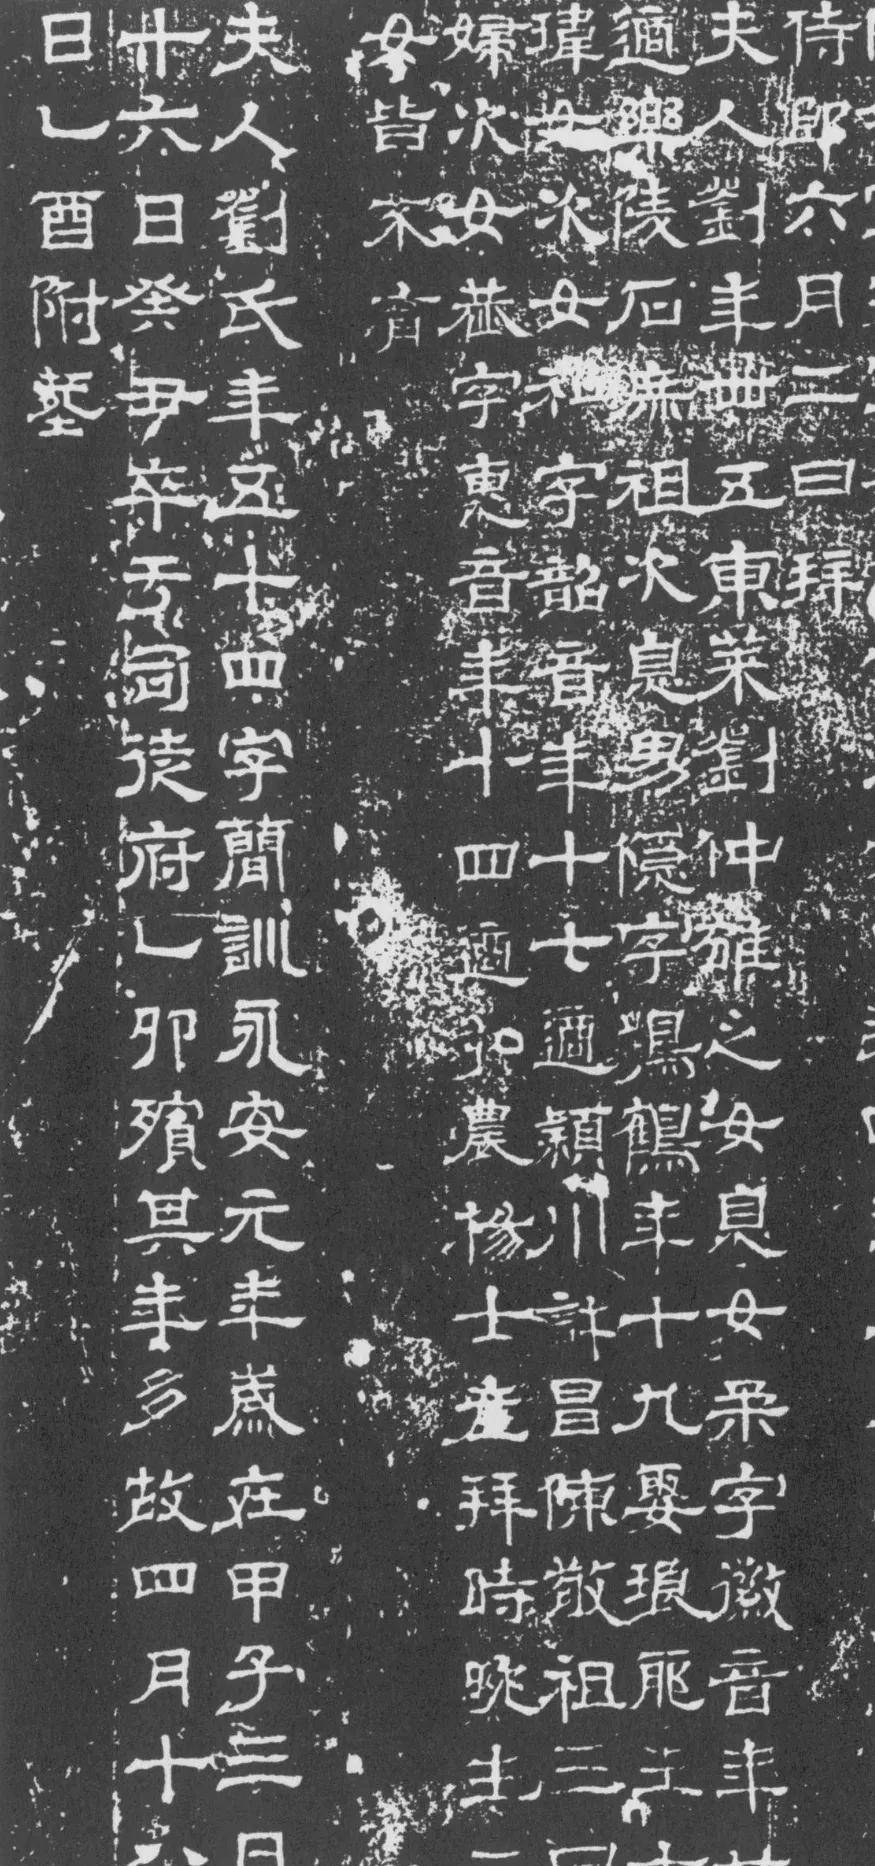 侍郎六月二日拜
夫人劉年卌五東萊劉仲雄之女息女柔字徽音年
適樂陵石庶祖次息男隱字鳴鶴年十九娶琅耶王
瑋女次女 字韶音年十七適潁川許昌陳敬祖三日
婦次女恭字惠音年十四適弘農楊士產拜時晚生二
女皆不育
夫人劉氏年五十四字簡訓永安元年歲在甲子三月
廿六日癸丑卒于司徒府乙卯殯其年多故四月十八
日乙酉附塟